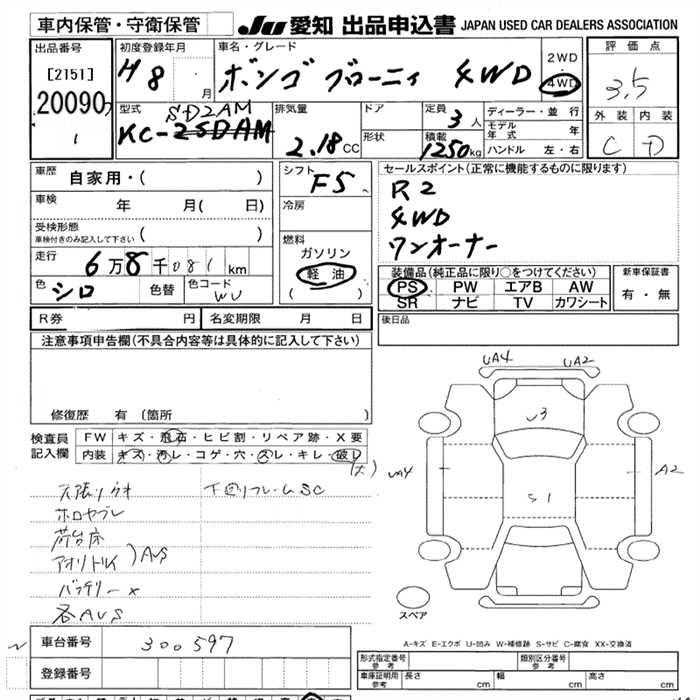 車内保管・守衛保管 JU 愛知 出品申込書 JAPAN USED CAR DEALERS ASSOCIATION
出品番号 初度登録年月 車名・グレード 2WD 評価点
[2151] H8 . 月 ボンゴ ブローニィ 4WD 4WD 3.5
20090
1
型式 SD2AM 排気量 ドア 定員 3人 ディーラー・並行 外装 内装
KC-2SDAM 2.18CC 形状 積載 1250kg モデル年式 年 C D
ハンドル 左・右
車歴 自家用・( ) シフト F5 セールスポイント(正常に機能するものに限ります)
車検 年 月( 日) 冷房 R2
受検形態 ( ) 4WD
車検付きのみ記入して下さい 燃料 ワンオーナー
走行 6万8千081km ガソリン
軽油
( )
色 シロ 色替 色コード WU
装備品(純正品に限り○をつけてください) 新車保証書
PS PW エアB AW 有・無
SR ナビ TV カワシート
R券 円 名変期限 月 日 後日品
注意事項申告欄(不具合内容等は具体的に記入して下さい)
修復歴 有 (箇所 )
検査員記入欄 FW キズ・飛石・ヒビ割・リペア跡・X要
内装 キズ・汚レ・コゲ・穴・スレ・キレ・破レ
(大)
下回リフレームSC
ホロヤブレ
荷台床
アオリ AUS
バッテリーx
各AUS
UA4 UA2
U3
UA4 A2
S1
スペア
A-キズ E-エクボ U-凹み W-補修跡 S-サビ C-腐食 XX-交換済
車台番号 300597
登録番号
形式指定番号 参考 類別区分番号 参考
車庫証明用 参考 長さ cm 幅 cm 高さ cm